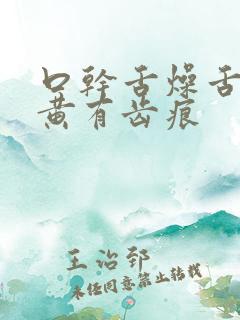 口幹舌燥舌
黄有齿痕
王治郅
未经同意禁止转载